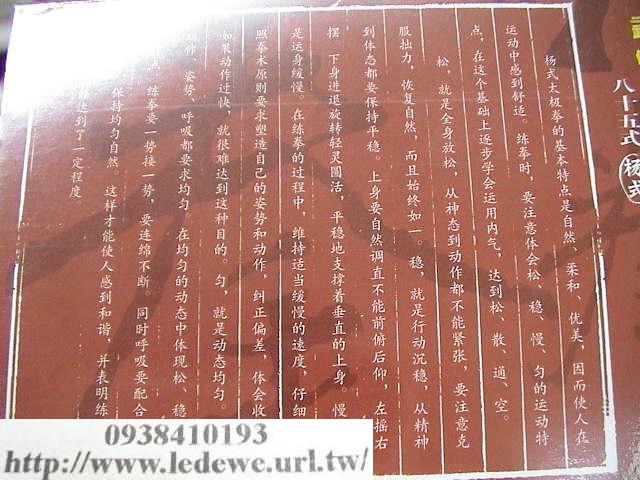 八十五式(杨式)
杨式太极拳的基本特点是自然、柔和、优美，因而使人在
运动中感到舒适。练拳时，要注意体会松、稳、慢、匀的运动特
点，在这个基础上逐步学会运用内气，达到松、散、通、空。
松，就是全身放松，从神态到动作都不能紧张，要注意克
服拙力，恢复自然，而且始终如一。稳，就是行动沉稳，从精神
到体态都要保持平稳。上身要自然调直不能前俯后仰，左摇右
摆 下身进退旋转轻灵圆活，平稳地支撑着垂直的上身 慢
是运身缓慢。在练拳的过程中，维持适当缓慢的速度，仔细
照拳术原则要求塑造自己的姿势和动作，纠正偏差 体会收
如果动作过快，就很难达到这种目的。匀，就是动态均匀。
动作、姿势、呼吸都要求均匀。在均匀的动态中体现松、稳
点，练拳要一势接一势，要连绵不断。同时呼吸要配合
保持均匀自然。这样才能使人感到和谐，并表明练
达到了一定程度
0938410193
http://www.ledewe.url.tw/